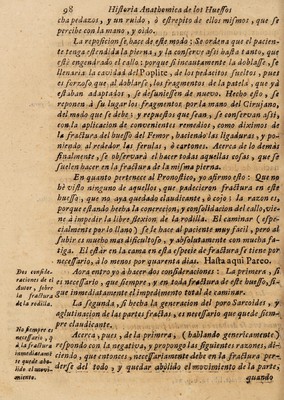 98 Historia Anathomica de los Huessos
cha pedazos, y un ruido, ò estrepito de ellos mismos, que se
percibe con la mano, y oido.
La reposicion se hace de este modo: Se ordena que el pacien-
te tenga estendida la pierna, y la conserve assi hasta tanto, que
està engendrado el callo: porque si incautamente la doblasse, se
llenaria la cavidad del Poplite, de los pedacitos sueltos, pues
es forzoso, que al doblarse, los fragmentos de la patela, que yà
estaban adaptados, se desunissen de nuevo. Hecho esto, se
reponen à su lugar los fragmentos por la mano del Cirujano,
del modo que se debe: y repuestos que sean, se conservan assi,
con la aplicacion de convenientes remedios, como diximos de
la fractura del huesso del Femor, haciendo las ligaduras, y po-
niendo al rededor las ferulas, ò cartones. Acerca de lo demàs
finalmente, se observarà el hacer todas aquellas cosas, que se
suelen hacer en la fractura de la misma pierna.
En quanto pertenece al Pronostico, yo afirmo esto: Que no
hè visto ninguno de aquellos, que padecieron fractura en este
huesso, que no aya quedado claudicante, ò cojo: la razon es,
porque estando hecha la conexion, y consolidacion del callo, vie-
ne à impedir la libre flexion de la rodilla. El caminar (espe-
cialmente por lo llano) se le hace al paciente muy facil, pero al
subir es mucho mas dificultoso, y absolutamente con mucha fa-
tiga. El estàr en la cama en esta especie de fractura se tiene por
necessario, à lo menos por quarenta dias. Hasta aqui Pareo.
Dos conside-
raciones de el
Autor, sobre
la fractura
de la rodilla.
Aora entro yo à hacer dos consideraciones: La primera, si
es necessario, que siempre, y en toda fractura de este huesso, si-
gue inmediatamente el impedimento total de caminar.
La segunda, si hecha la generacion del poro Sarcoides, y
aglutinacion de las partes fractas, es necessario que quede siem-
pre claudicante.
No siempre es
necessario, q
à la fractura
inmediatamē
te quede abo-
lido el movi-
miento.
Acerca, pues, de la primera, (hablando genericamente)
respondo con la negativa, y propongo las siguientes razones, di-
ciendo, que entonces, necessariamente debe en la fractura per-
derse del todo, y quedar abolido el movimiento de la parte,
quando